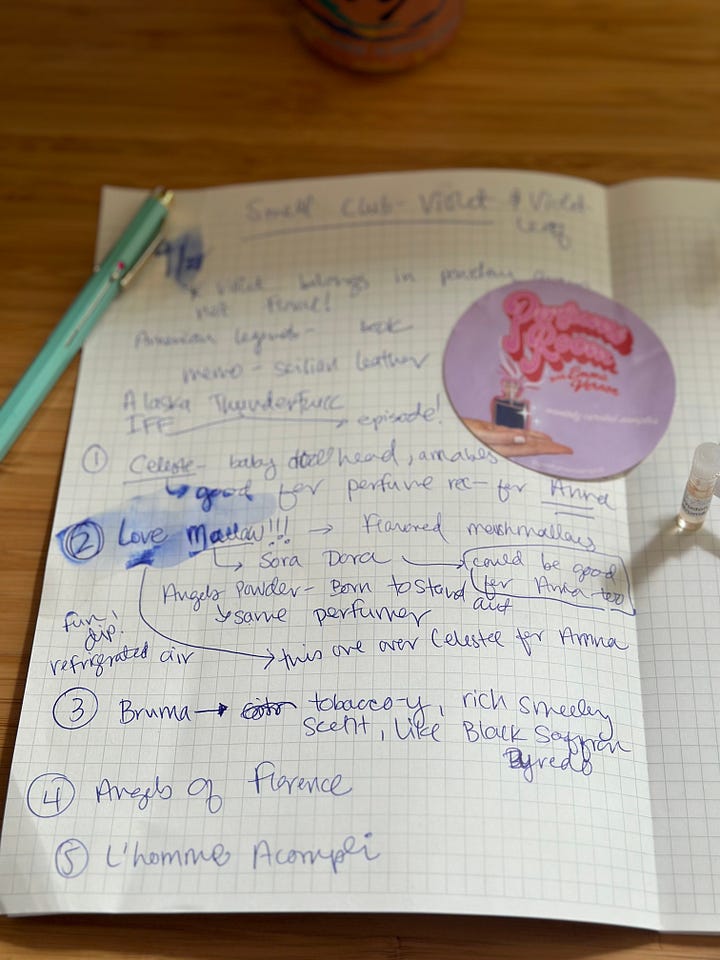 Smell Club - Violet & Violet
Leaf
9/
* violet belongs in
not floral!
American legends - book
memo - scilian leather
Alaska Thunderfucc
IFF episode!
① Celeste - baby doll head,
good for perfume rec - for Anna
② Love Mallow!!! → Flavored meshmallows
Sora Dora
could be good
for Anna too
Angels Powder - Born to Stand out
same perfumer
fun
dip!
refrigerated air
this one over Celestee for Amna
③ Bruma → tobacco-y, rich smeeley
scent, like Black Saffron
Byredo
④ Angels of Florence
⑤ L'homme Acompli
Perfume
Room
with Emma
Vernon